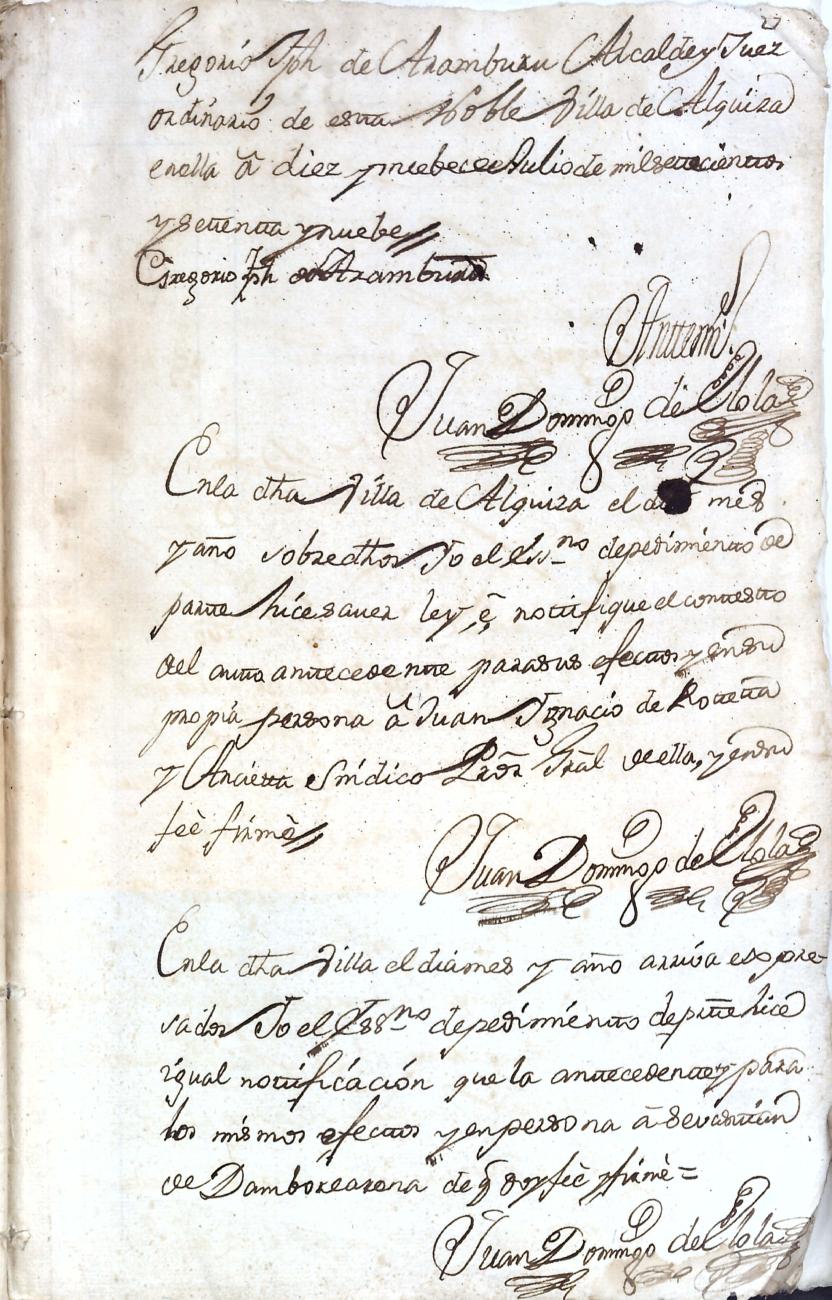 Gregorio Jph de Aramburu Alcalde y Juez
ordinario de esta Noble Villa de Alquiza
en ella â diez y nuebe de Julio de mil setecientos
y setenta y nuebe //
Gregorio Jph de Aramburu
Antemi
Juan Domingo de Elola
En la dha Villa de Alquiza el dia mes
y año sobre dhos Yo el essno de pedimiento de
parte hice saver ley, ê, notifique el contesto
del auto antecedente para sus efectos y en su
propia persona â Juan Ygnacio de Rotetta
y Ancieta Sindico Pror Gral de ella, y en su
feè firmè //
Juan Domingo de Elola
En la dha Villa el dia mes y año arriva espre-
sados Yo el Essno de pedimiento de pte hice
igual notificación que la antecedente y para
los mismos efectos y en persona â Sevastian
de Damborearena de q doy feè y firmè =
Juan Domingo de Elola